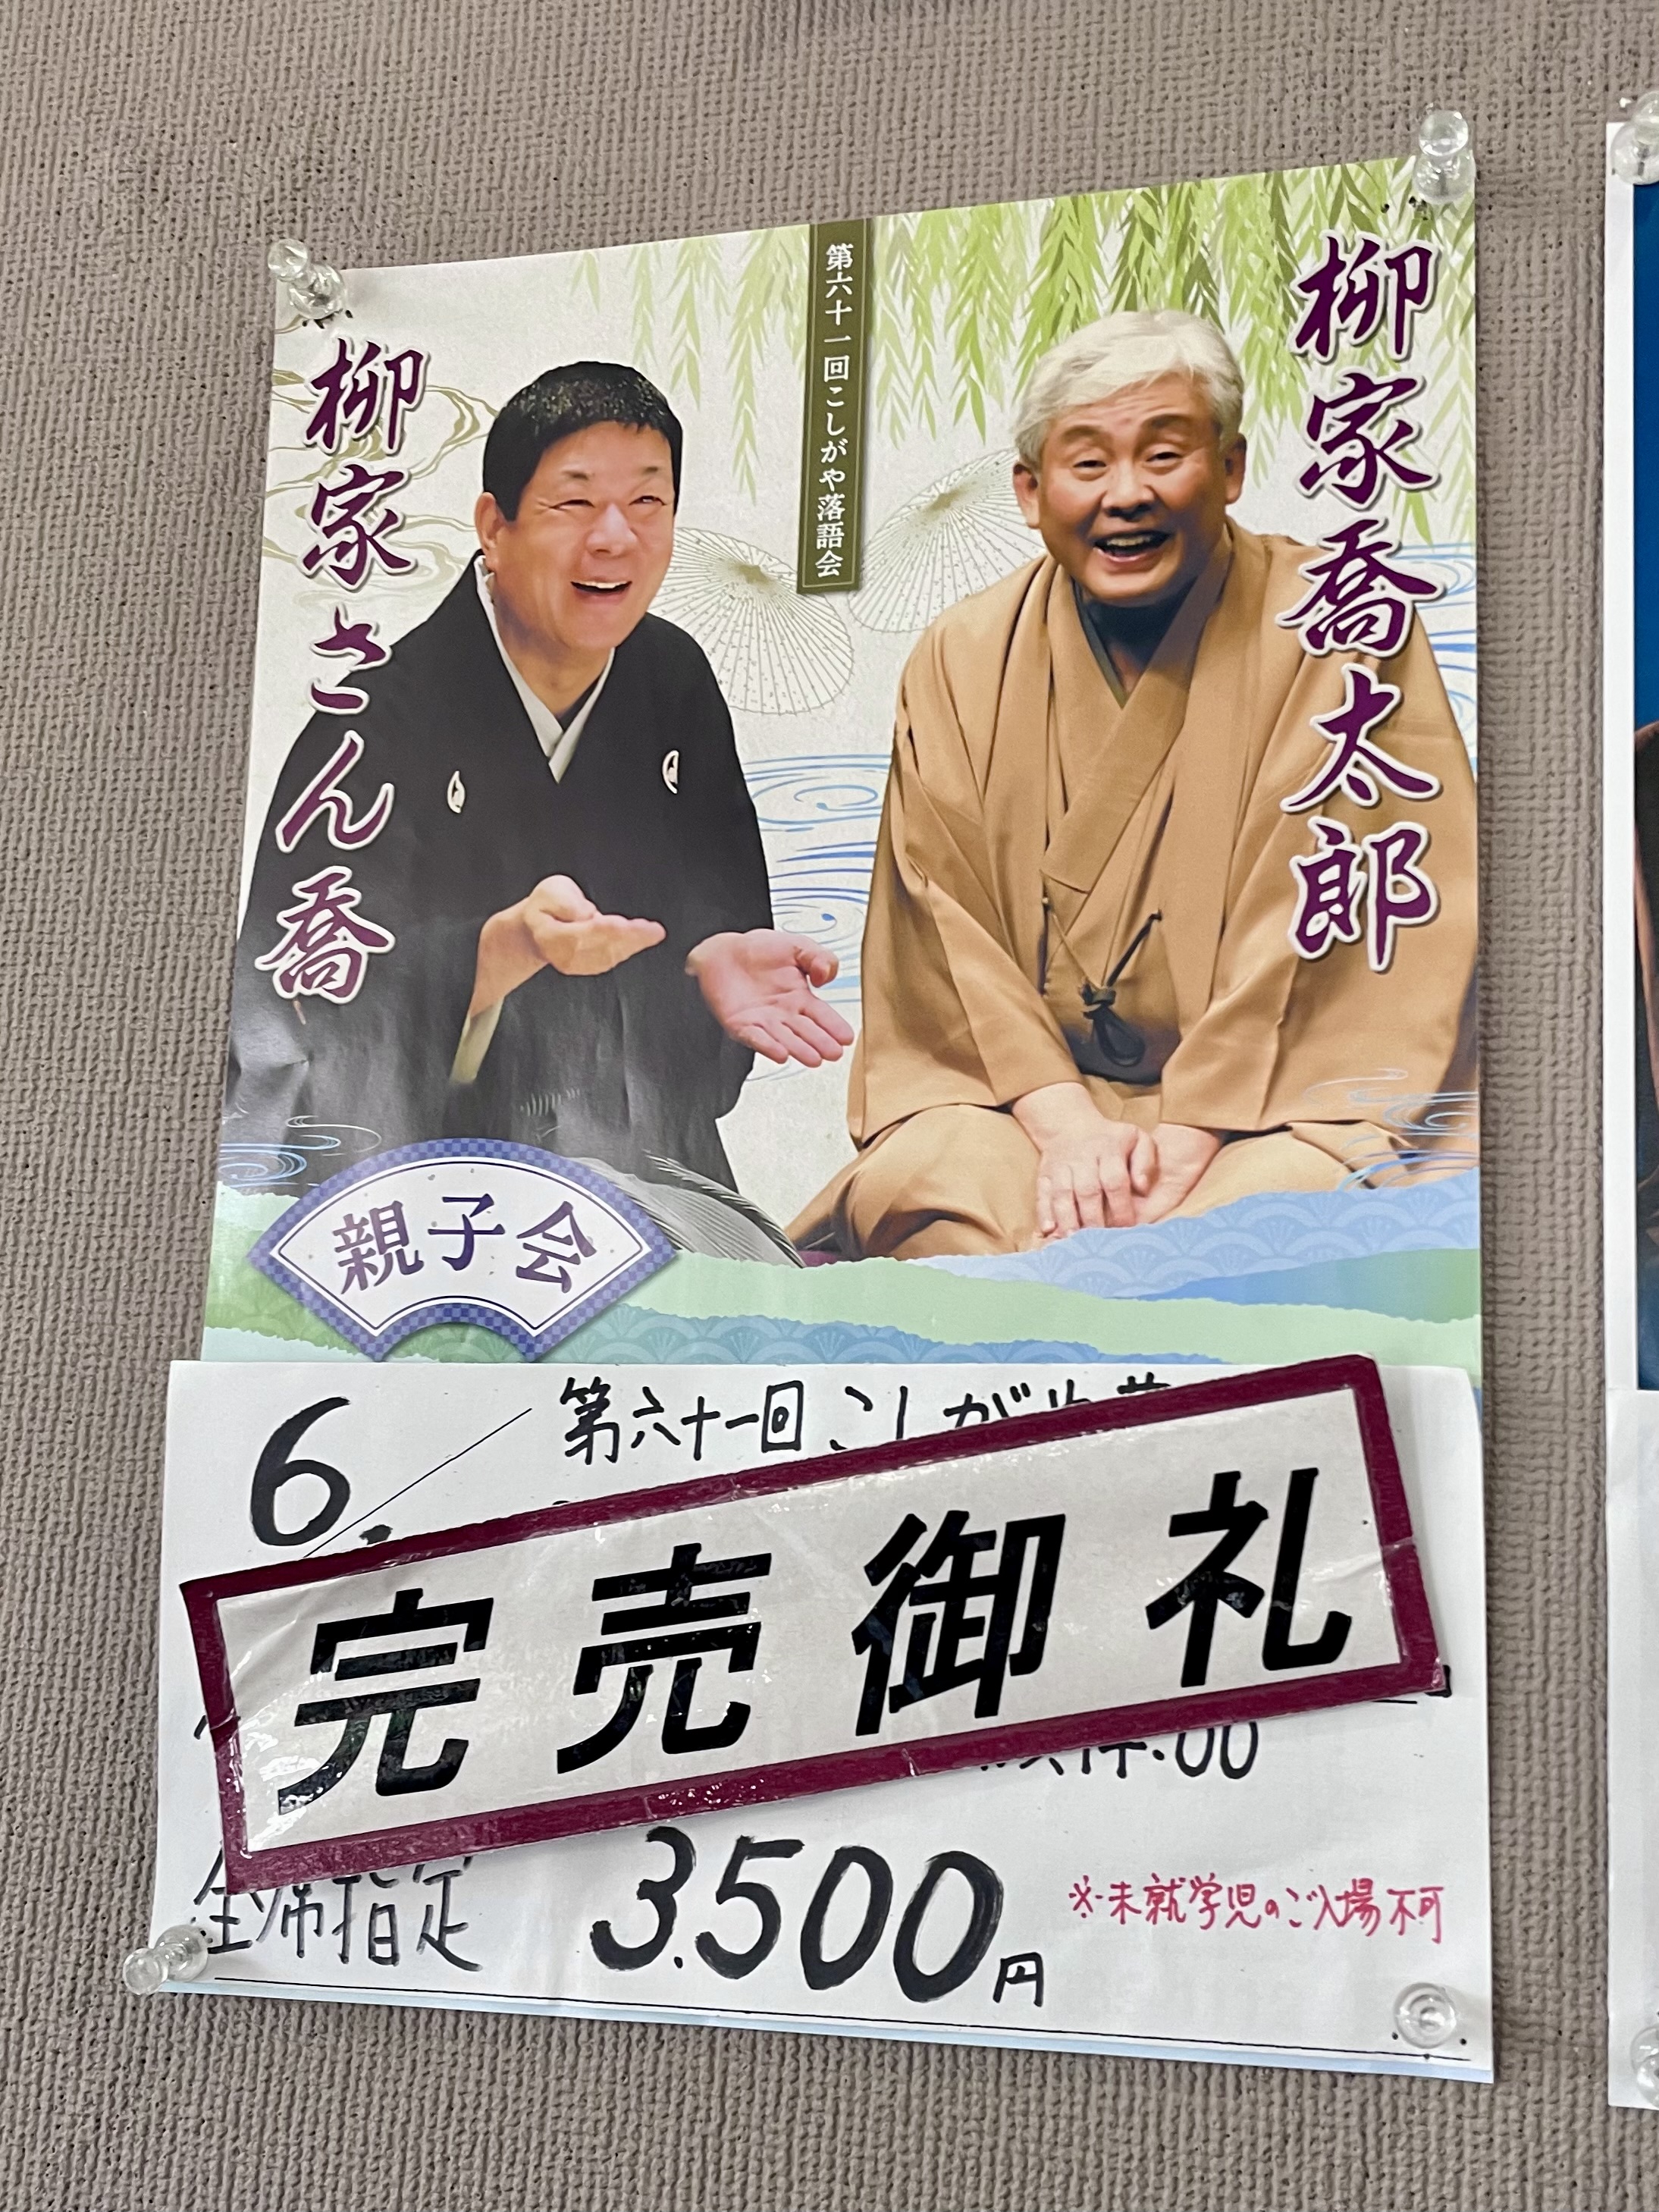 柳家喬太郎
第六十一回こしがや落語会
柳家さん喬
親子会
6/
第六十一回こしがや
完売御礼
:00
全席指定
3.500円
※未就学児のご入場不可